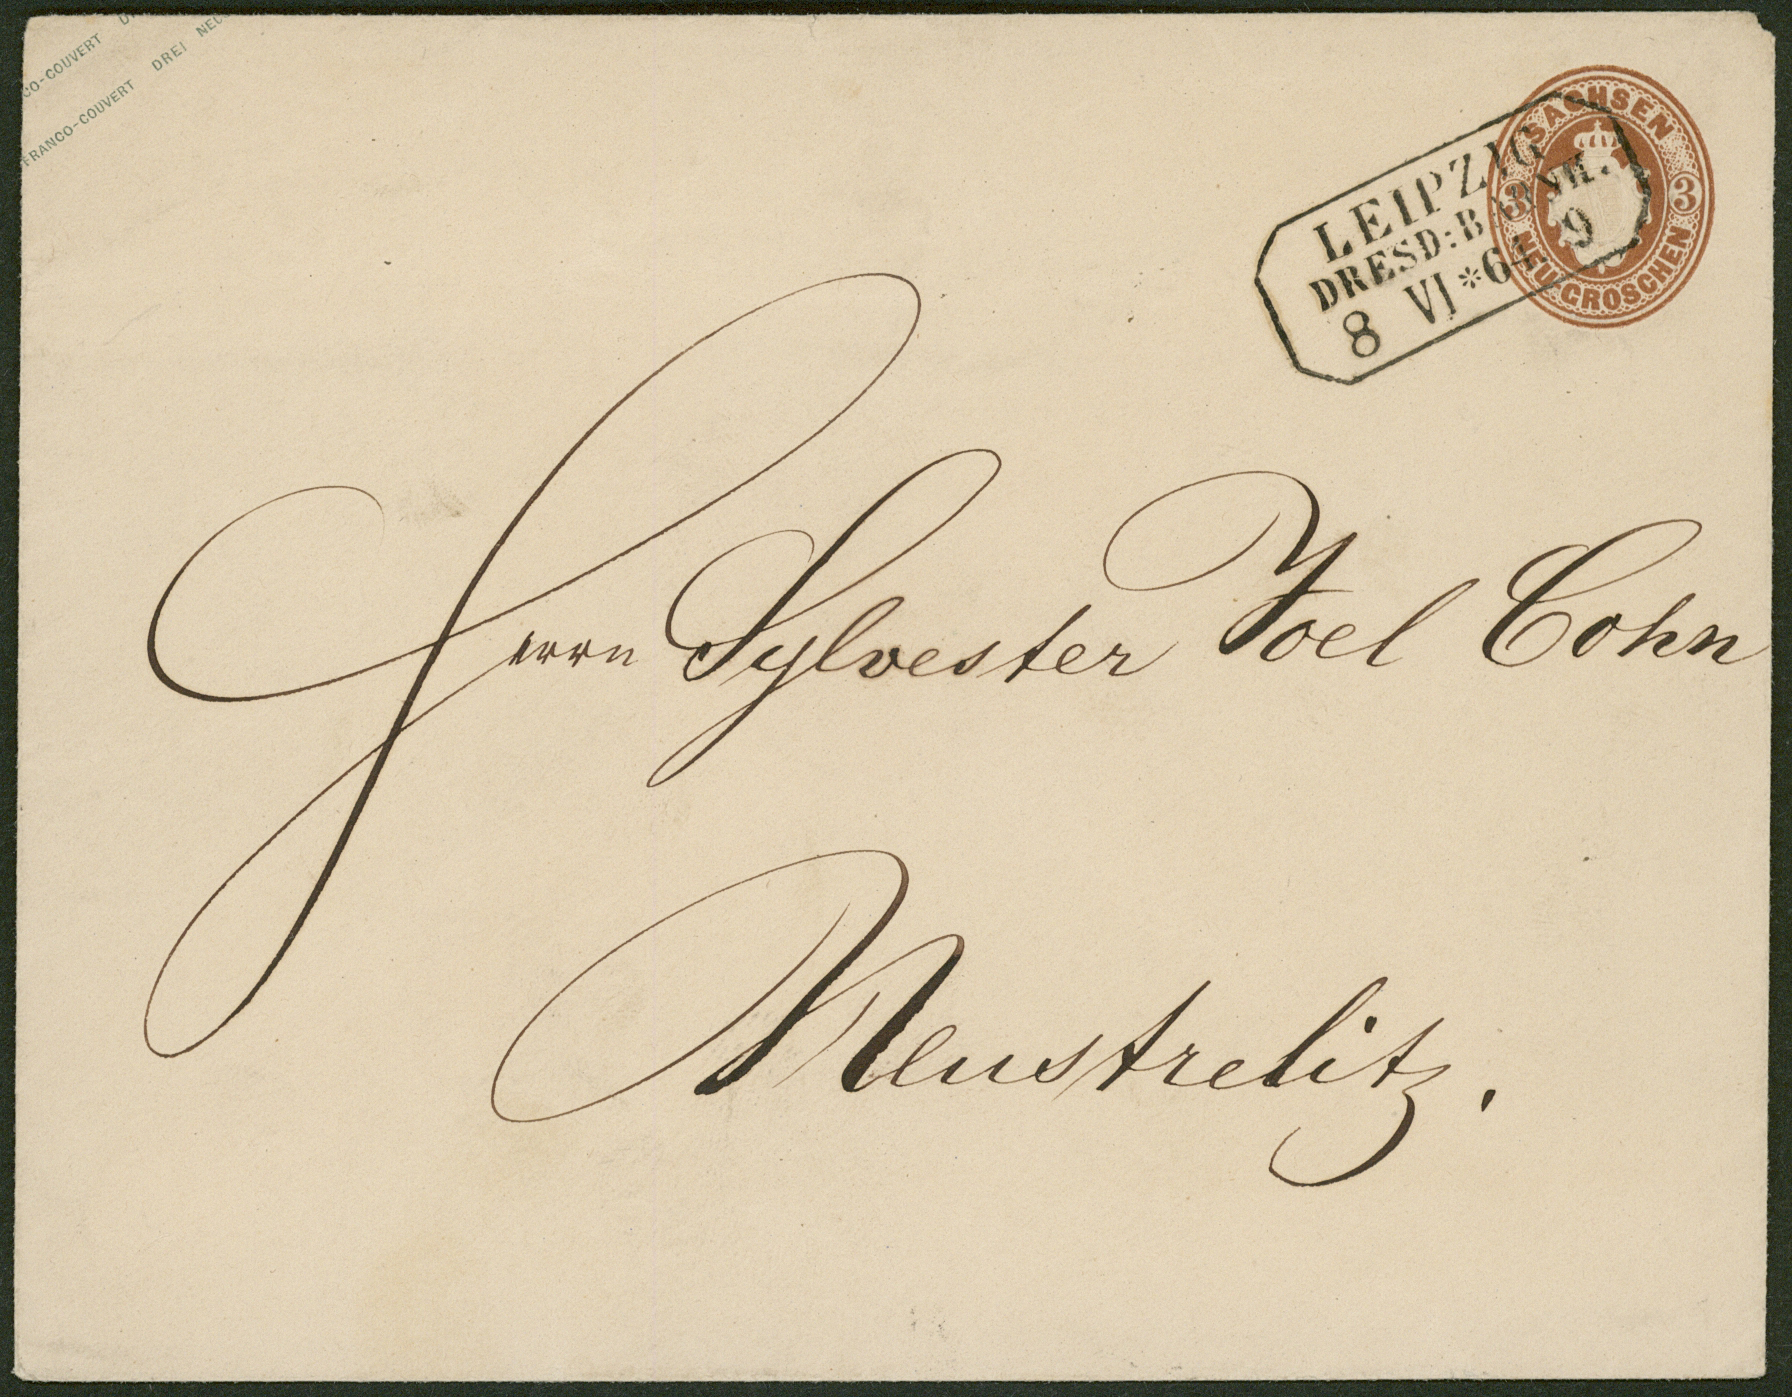 CO-COUVERT
FRANCO-COUVERT DREI NEU
SACHSEN
3 3
NEU GROSCHEN
LEIPZIG
DRESD: BAHNH.
8 VI * 64 9
Herrn Sylvester Joel Cohn
Neustrelitz.